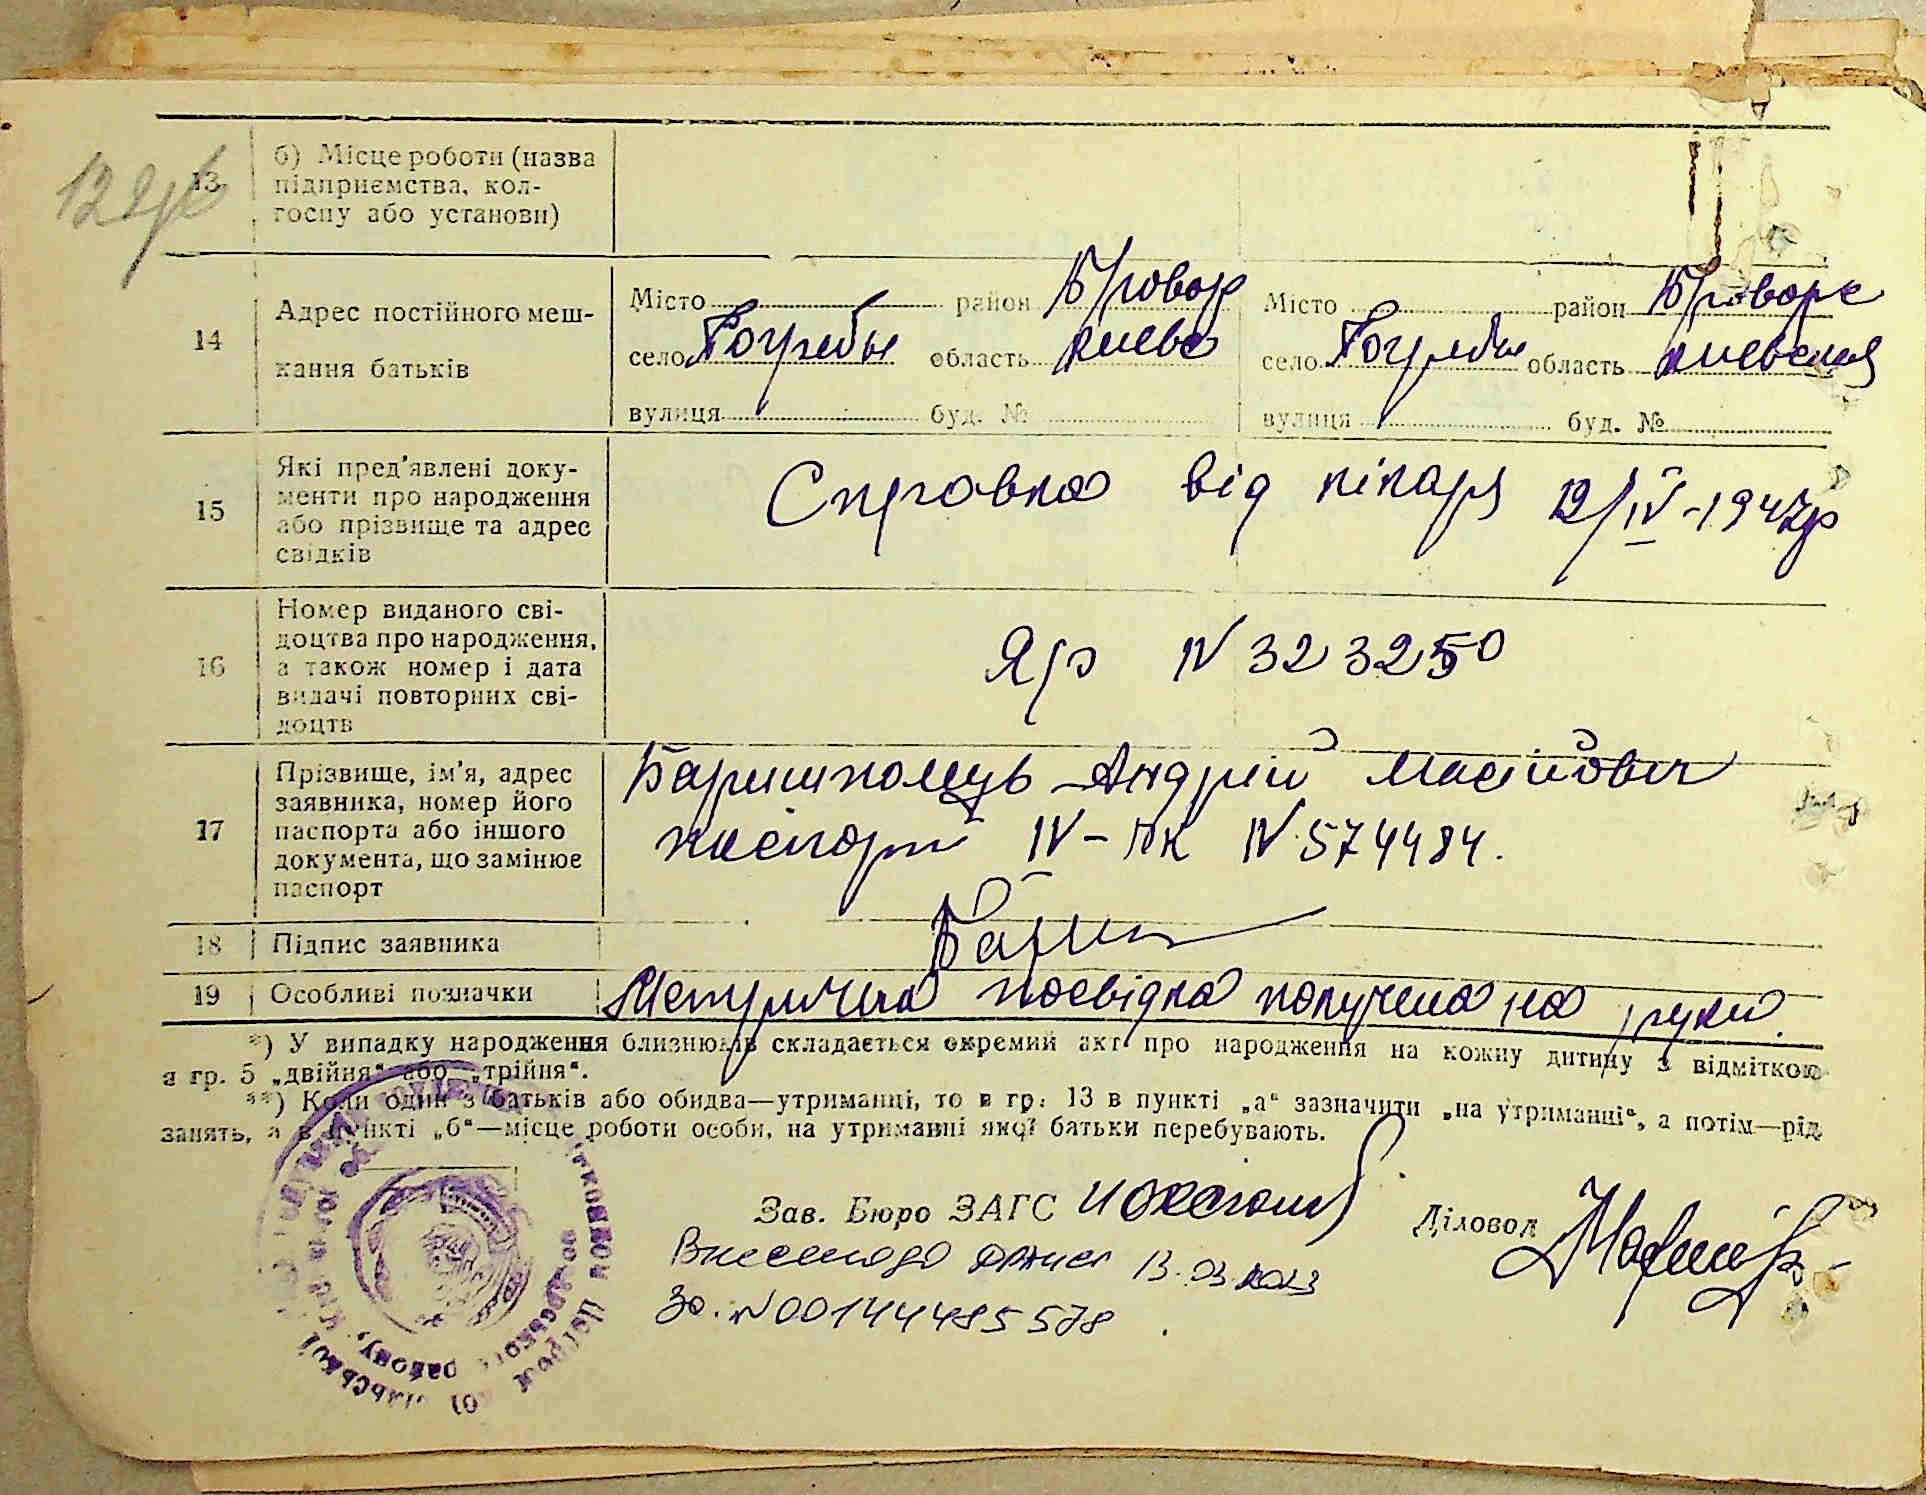 12
13 б) Місце роботи (назва
підприємства, кол-
госпу або установи)
14 Адрес постійного меш-
кання батьків
Місто район Бровар Місто район Броварс
село Погребы область Киевс село Погребы область Киевская
вулиця буд. № вулиця буд. №
15 Які пред'явлені доку-
менти про народження
або прізвище та адрес
свідків
Справка від лікаря 12/IV-1947р
16 Номер виданого сві-
доцтва про народження,
а також номер і дата
видачі повторних сві-
доцтв
N 323250
17 Прізвище, ім'я, адрес
заявника, номер його
паспорта або іншого
документа, що замінює
паспорт
Баришполець Андрій
паспорт IV-ПК N 574484.
18 Підпис заявника
19 Особливі позначки Метрична посвідка получена на руки.
*) У випадку народження близнюків складається окремий акт про народження на кожну дитину з відміткою
в гр. 5 „двійня“ або „трійня“.
**) Коли один з батьків або обидва—утриманці, то в гр. 13 в пункті „а“ зазначити „на утриманні“, а потім—рід
занять, а в пункті „б“—місце роботи особи, на утриманні якої батьки перебувають.
Зав. Бюро ЗАГС Діловод
Внесено до 13.03.2023
за. N 00144485578